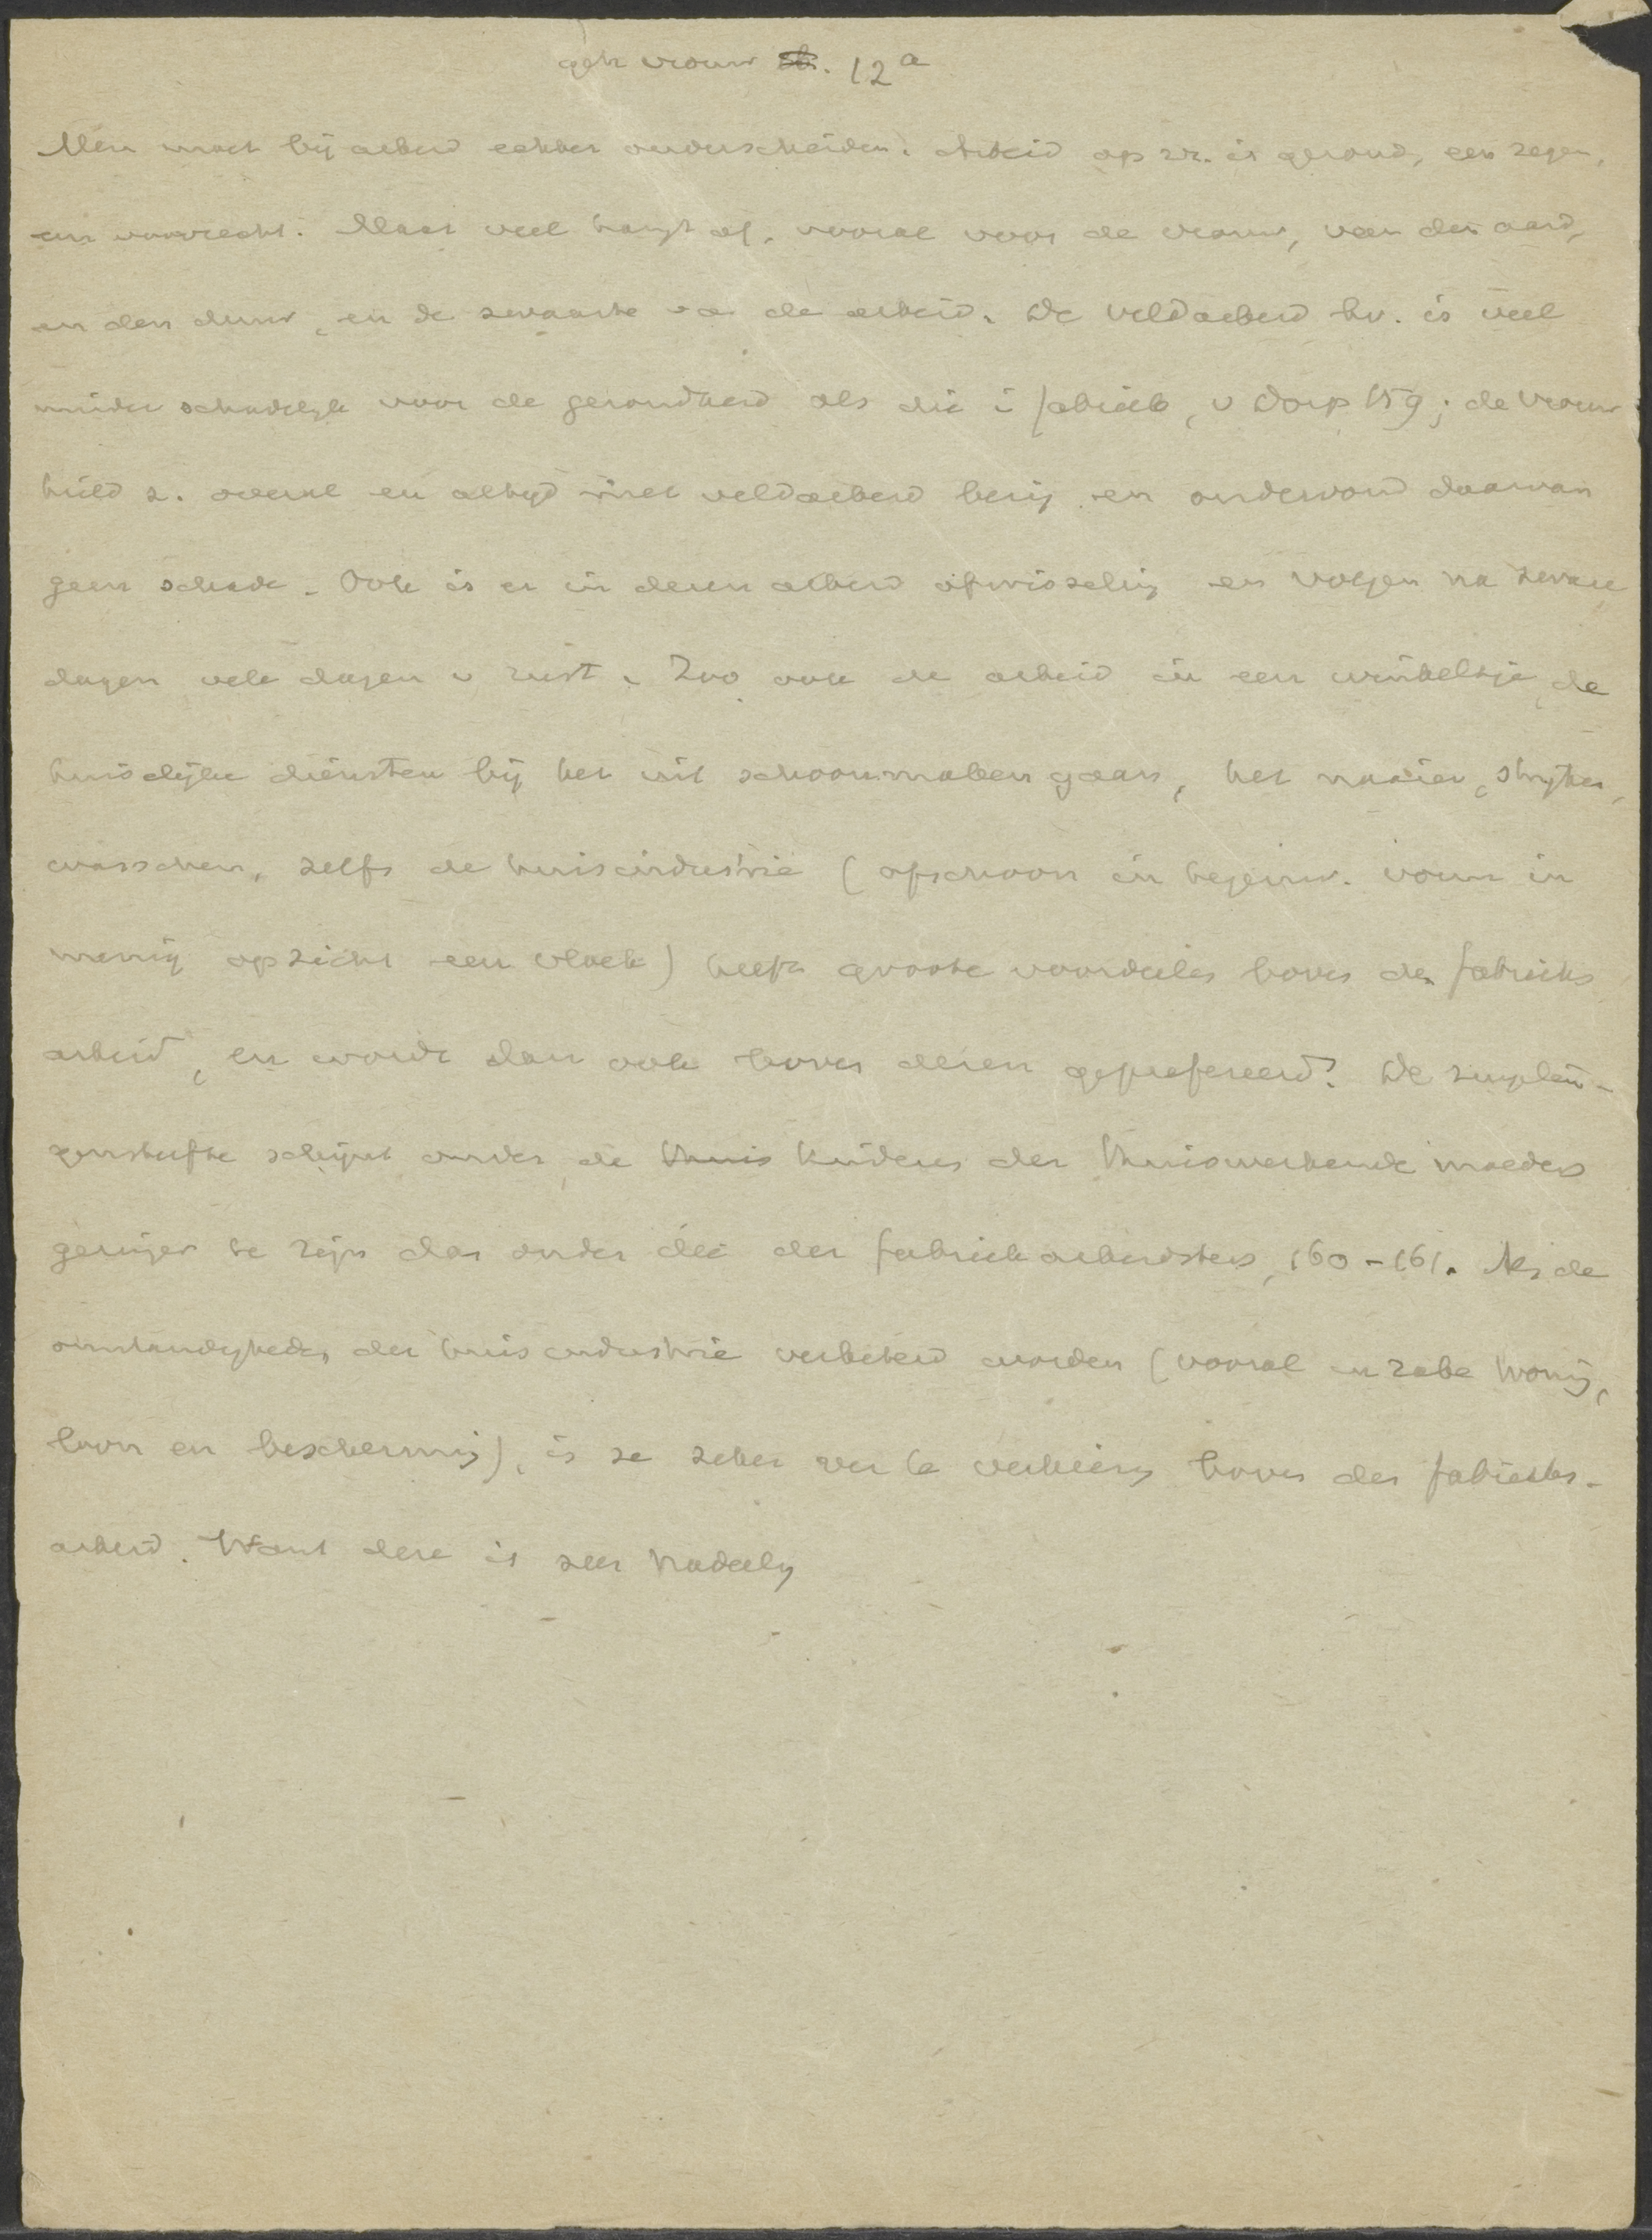 geh vrouw 12a
Men moet bij arbeid echter onderscheiden. Arbeid op zz. is gezond, een zegen,
een voorrecht. Maar veel hangt af, vooral voor de vrouw, van den aard,
en den duur, en de zwaarte va de arbeid. De veldarbeid bv. is veel
minder schadelijk voor de gezondheid als die i fabriek, v Dorp 159; de vrouw
hield z. overal en altijd met veldarbeid bezig en ondervond daarvan
geen schade. Ook is er in dezen arbeid afwisseling en volgen na zware
dagen vele dagen v rust. Zoo ook de arbeid in een winkeltje, de
huiselijke diensten bij het uit schoonmaken gaan, het naaien, strijken,
wasschen, zelfs de huisindustrie (ofschoon in tegenw. vorm in
menig opzicht een vloek) heeft groote voordeelen boven den fabrieks
arbeid, en wordt dan ook boven dezen geprefereerd. De zuigelin-
gensterfte schijnt onder de thuis kinderen der thuiswerkende moeders
geringer te zijn dan onder die der fabriekarbeidsters, 160-161. Als de
omstandigheden der huisindustrie verbeterd worden (vooral in zake woning,
loon en bescherming), is ze zeker ver te verkiezen boven den fabrieks-
arbeid. Want deze is zeer nadeelig